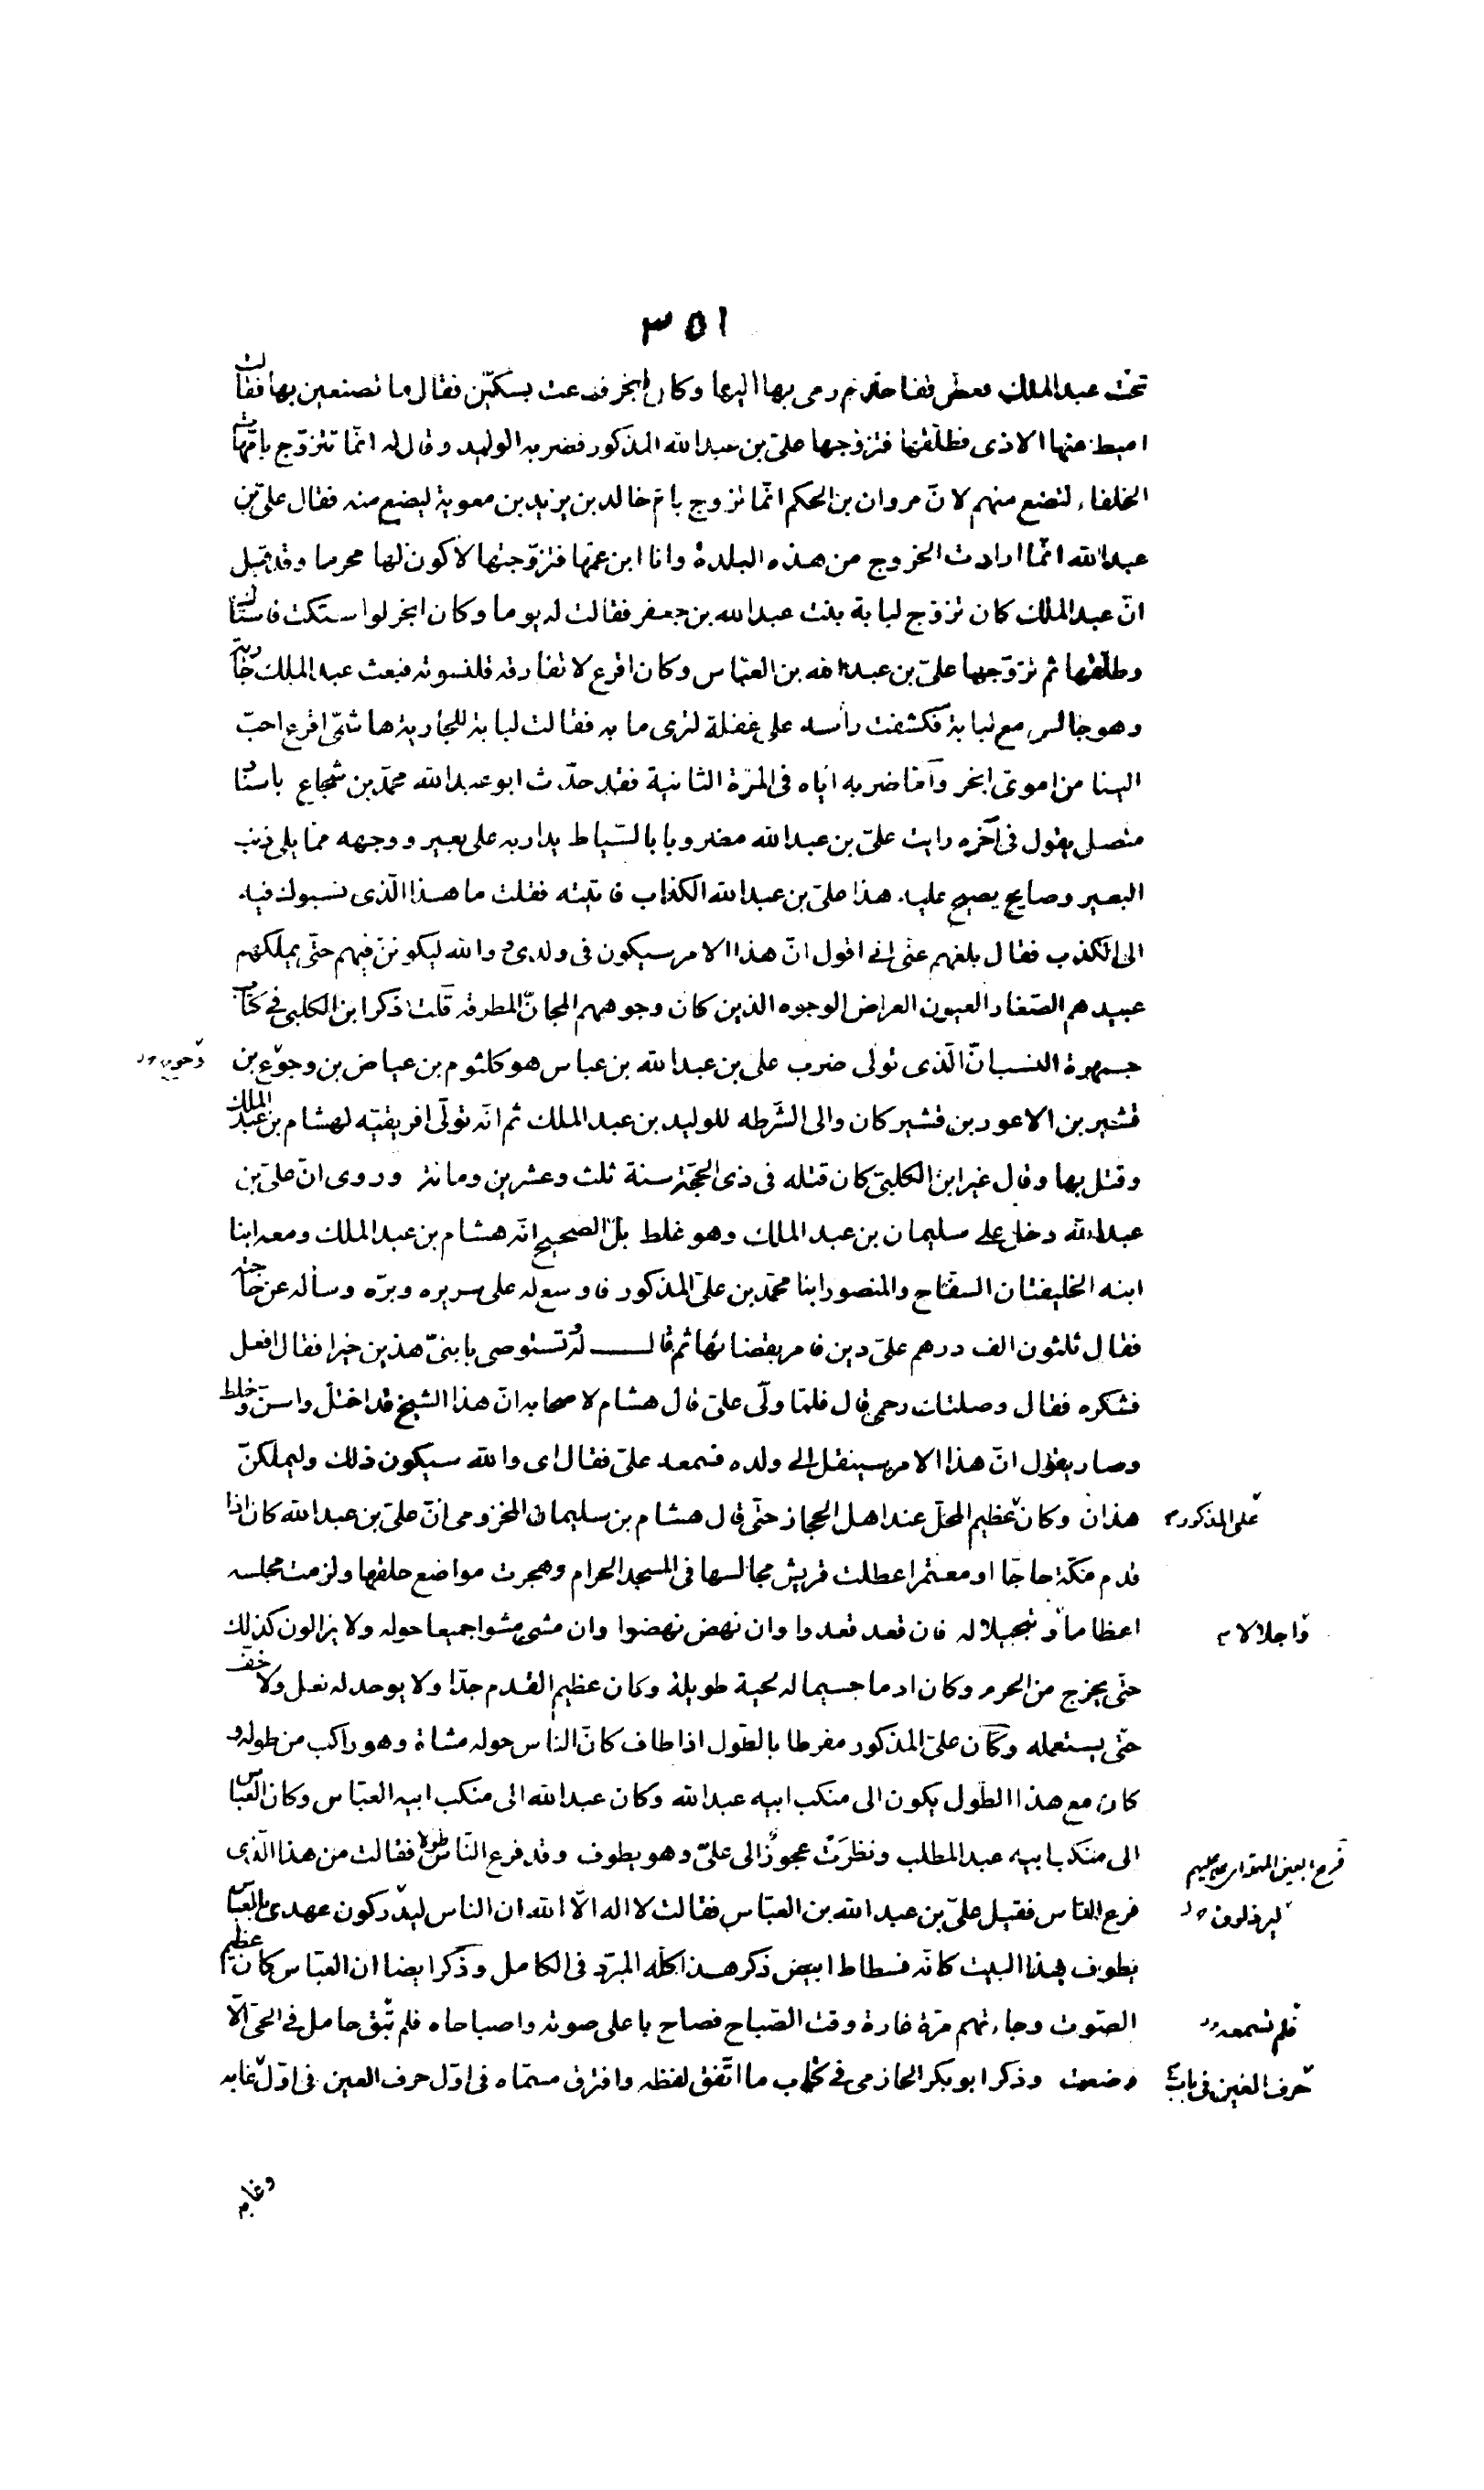 ٣٥١
تحت عبد الملك فعض تفاحة ثم رمى بها اليها وكان ابخر فدعت بسكّين فقال ما تصنعين بها فقالت
اميط عنها الاذى فطلّقها فتزوّجها علىّ بن عبد الله المذكور فضربه الوليد وقال له انّما تتزوّج بامّهات
الخلفاء لتضع منهم لانّ مروان بن الحكم انّما تزوج بامّ خالد بن يزيد بن معوية ليضع منه فقال علىّ بن
عبد الله انّما ارادت الخروج من هذه البلدة وانا ابن عمّها فتزوّجتها لاكون لها محرما وقد قيل
انّ عبد الملك كان تزوّج لبابة بنت عبد الله بن جعفر فقالت له يوما وكان ابخر لو استكت فاستاك
وطلّقها ثم تزوّجها علىّ بن عبد الله بن العبّاس وكان اقرع لا تفارقه قلنسوته فبعث عبد الملك جارية
وهو جالس مع لبابة فكشفت رأسه على غفلة لترى ما به فقالت لبابة للجارية هاشمىّ اقرع احبّ
الينا من اموىّ ابخر وأمّا ضربه ايّاه فى المرّة الثانية فقد حدّث ابو عبد الله محمّد بن شجاع باسناد
متصل يقول فى آخره رايت علىّ بن عبد الله مضروبا بالسّياط يدار به على بعير ووجهه ممّا يلى ذنب
البعير وصايح يصيح عليه هذا علىّ بن عبد الله الكذاب فاتيته فقلت ما هذا الّذى نسبوك فيه
الى الكذب فقال بلغهم عنّى انى اقول انّ هذا الامر سيكون فى ولدى والله ليكوننّ فيهم حتّى يملكهم
عبيدهم الصّغار العيون العراض الوجوه الذين كان وجوههم المجانّ المطرقة قلت ذكر ابن الكلبى فى كتاب
جمهرة النسب انّ الّذى تولى ضرب على بن عبد الله بن عباس هو كلثوم بن عياض بن وحوح بن
قشير بن الاعور بن قشير كان والى الشّرطه للوليد بن عبد الملك ثم انّه تولّى افريقيّه لهشام بن عبد الملك
وقتل بها وقال غير ابن الكلبىّ كان قتله فى ذى الحجّة سنة ثلث وعشرين ومائة وروى انّ علىّ بن
عبد الله دخل على سليمان بن عبد الملك وهو غلط بل الصحيح انّه هشام بن عبد الملك ومعه ابنا
ابنه الخليفتان السفّاح والمنصور ابنا محمّد بن علىّ المذكور فاوسع له على سريره وبرّه وسأله عن حاجته
فقال ثلثون الف درهم علىّ دين فامر بقضائها ثم قال له وتستوصى بابنىّ هذين خيرا فقال افعل
فشكره فقال وصلتك رحم قال فلمّا ولّى علىّ قال هشام لاصحابه انّ هذا الشيخ قد اختلّ واسنّ وخلط
وصار يقول انّ هذا الامر سينقل الى ولده فسمعه علىّ فقال اى والله سيكون ذلك وليملكنّ
هذان وكان عظيم المحلّ عند اهل الحجاز حتّى قال هشام بن سليمان المخزومى انّ علىّ بن عبد الله كان اذا
على المذكور م
قدم مكّة حاجّا او معتمرا عطلت قريش مجالسها فى المسجد الحرام وهجرت مواضع حلقها ولزمت مجلسه
اعظاما وتبجيلا له فان قعد قعدوا وان نهض نهضوا وان مشى مشوا جميعا حوله ولا يزالون كذلك
واجلالا م
حتّى يخرج من الحرم وكان ادما جسيما له لحية طويلة وكان عظيم القدم جدّا ولا يوجد له نعل ولا خفّ
حتّى يستعمله وكان علىّ المذكور مفرطا بالطّول اذا طاف كانّ الناس حوله مشاة وهو راكب من طوله و
كان مع هذا الطّول يكون الى منكب ابيه عبد الله وكان عبد الله الى منكب ابيه العبّاس وكان العبّاس
الى منكب ابيه عبد المطلب ونظرَتْ عجوزٌ الى علىّ وهو يطوف وقد فرع النّاس طولا فقالت من هذا الّذى
فرع النّاس فقيل علىّ بن عبد الله بن العبّاس فقالت لا اله الّا الله ان الناس ليدركون عهدى بالعبّاس
ليرذلون
يطوف بهذا البيت كانّه فسطاط ابيض ذكر هذا كلّه المبرّد فى الكامل وذكر ايضا ان العبّاس كان عظيم
الصّوت وجاءتهم مرّة غارة وقت الصّباح فصاح باعلى صوته واصباحاه فلم تبق حامل فى الحىّ الّا
فلم تسمعه
وضعت وذكر ابو بكر الحازمى فى كتاب ما اتّفق لفظه وافترق مسمّاه فى اوّل حرف العين فى اوّل غابه
حرف الغين فى باب
وغابه